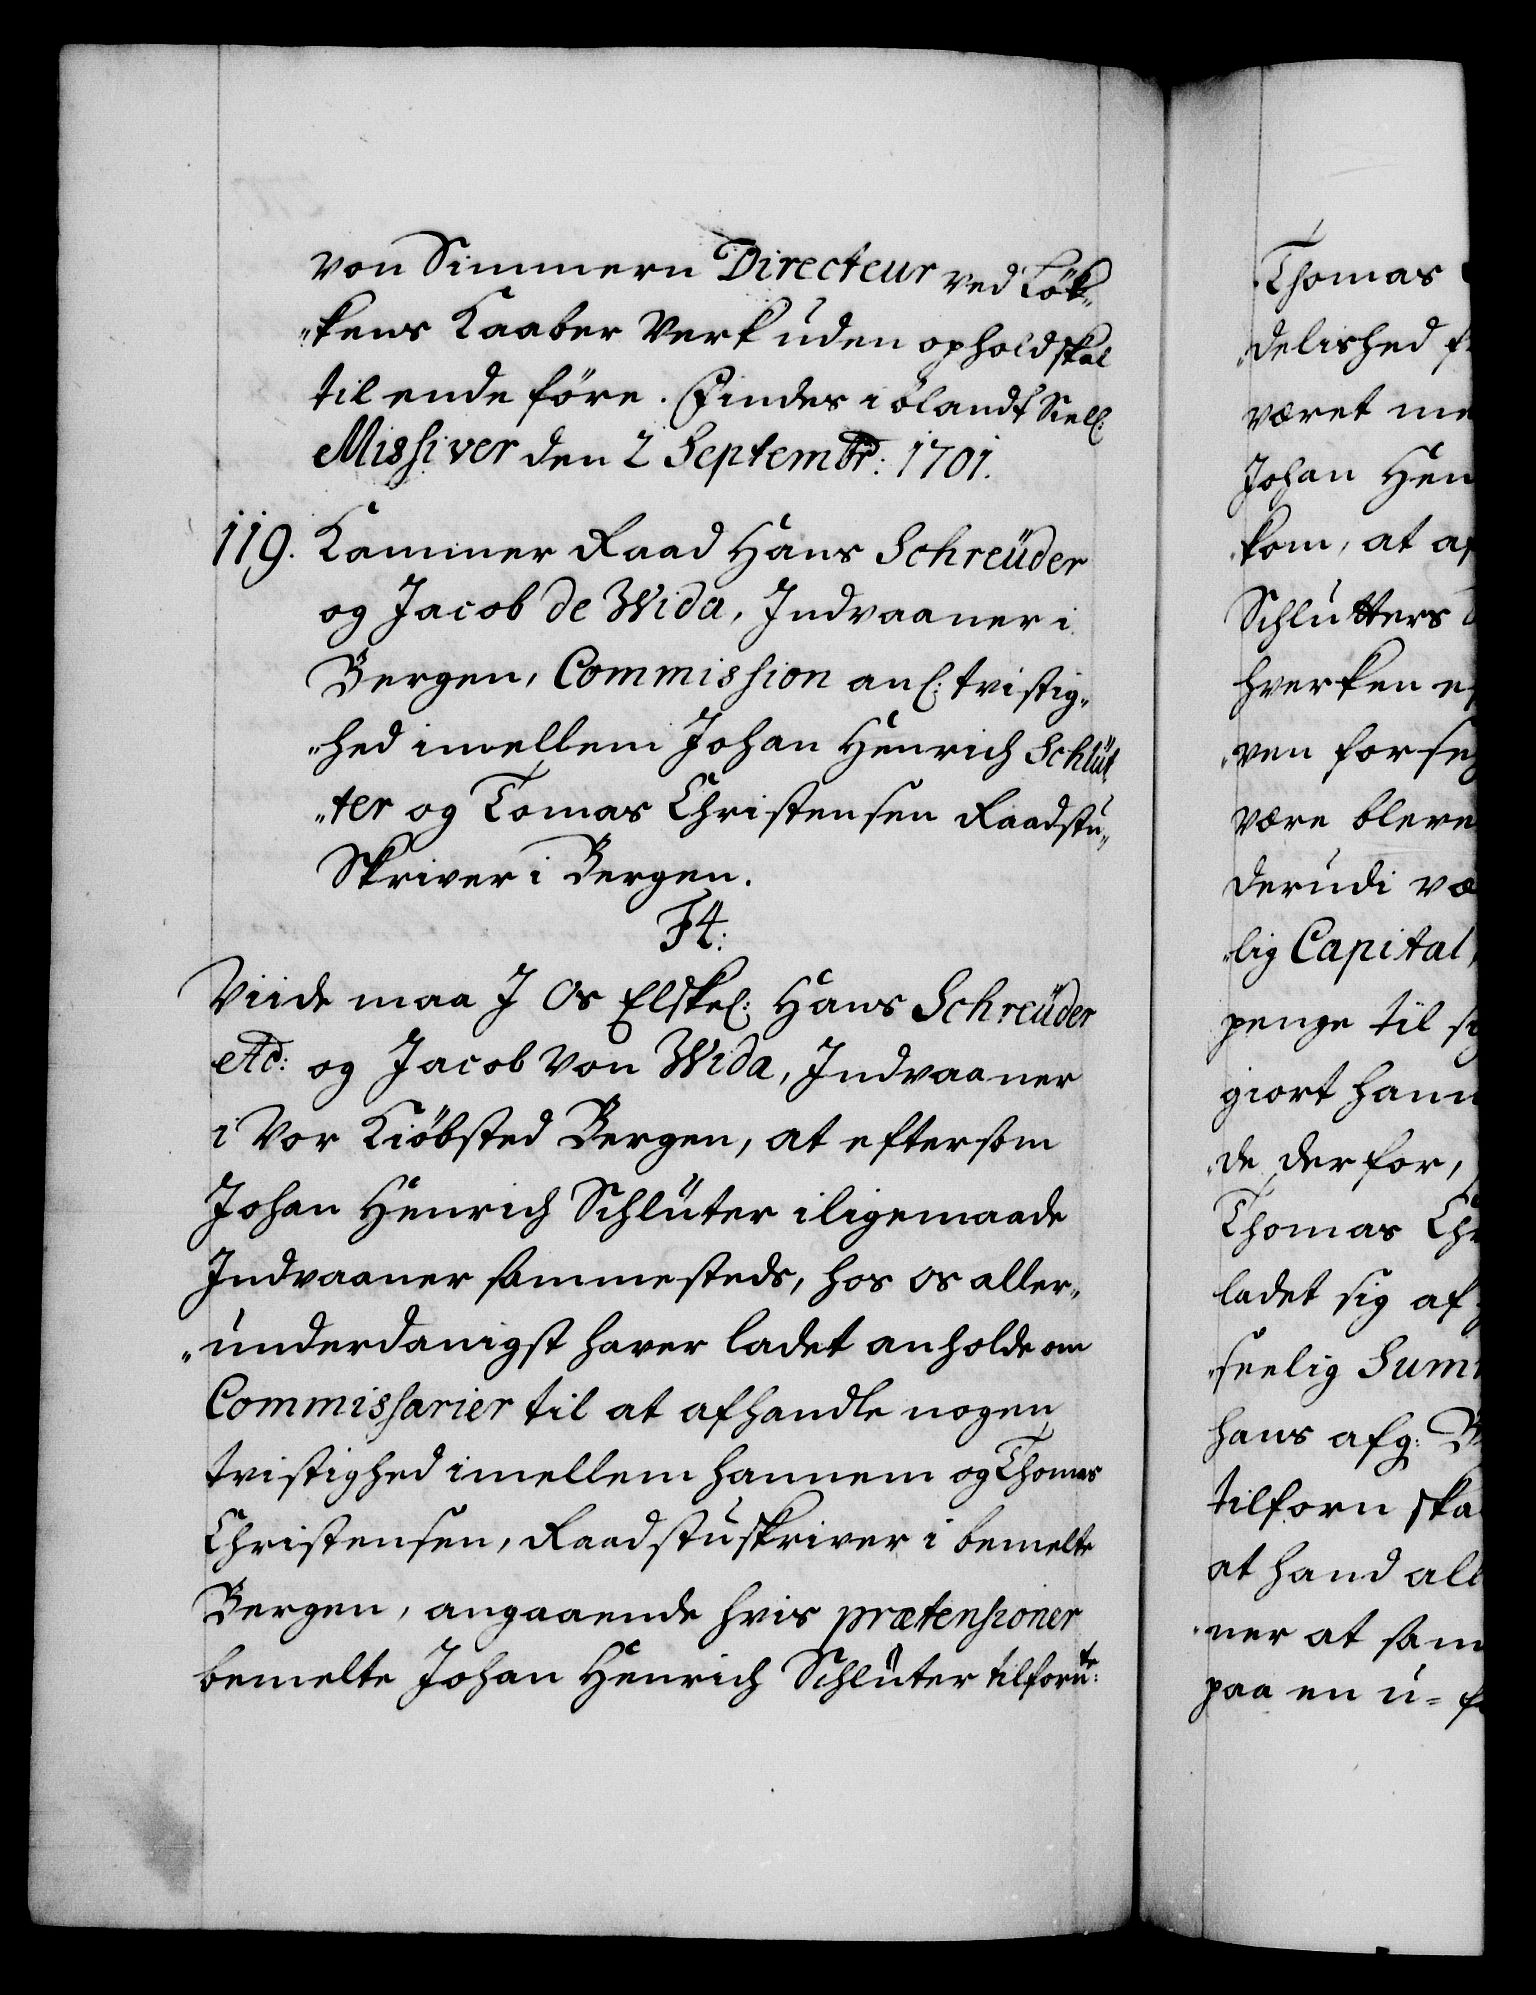 von Simmern Directeur ved Lök„
„kens Kaaber Verk uden ophold skal
til ende före. Findes i ölandf Siell:
Missiver den 2 Septembr: 1701.
119. Kammer Raad Hans Schreüder
og Jacob de Wida, Indvaaner i
Bergen, Commission anl: tvistig„
„hed imellem Johan Henrich Schlüt„
„ter og Tomas Christensen Raadstu„
Skriver i Bergen.
F4:
Viide maa J Os Elskel: Hans Schreüder
etc: og Jacob von Wida, Indvaaner
i Vor Kiöbsted Bergen, at eftersom
Johan Henrich Schlüter iligemaade
Indvaaner sammesteds, hos os aller„
„underdanigst haver ladet anholde om
Commissarier til at afhandle nogen
tvistighed imellem hannem og Thomas
Christensen, Raadstuskriver i bemelte
Bergen, angaaende hvis prætensioner
bemelte Johan Henrich Schlüter tilforn:
Thomas
„delished
været
Johan Hen
kom, at
Schlutters
hverken
„ven
være bleve
derudi
„lig Capital,
penge til
giort hann
„de derfor,
Thomas
ladet sig af
„seelig
hans afg:
tilforn
at hand
„ner at
paa en u=